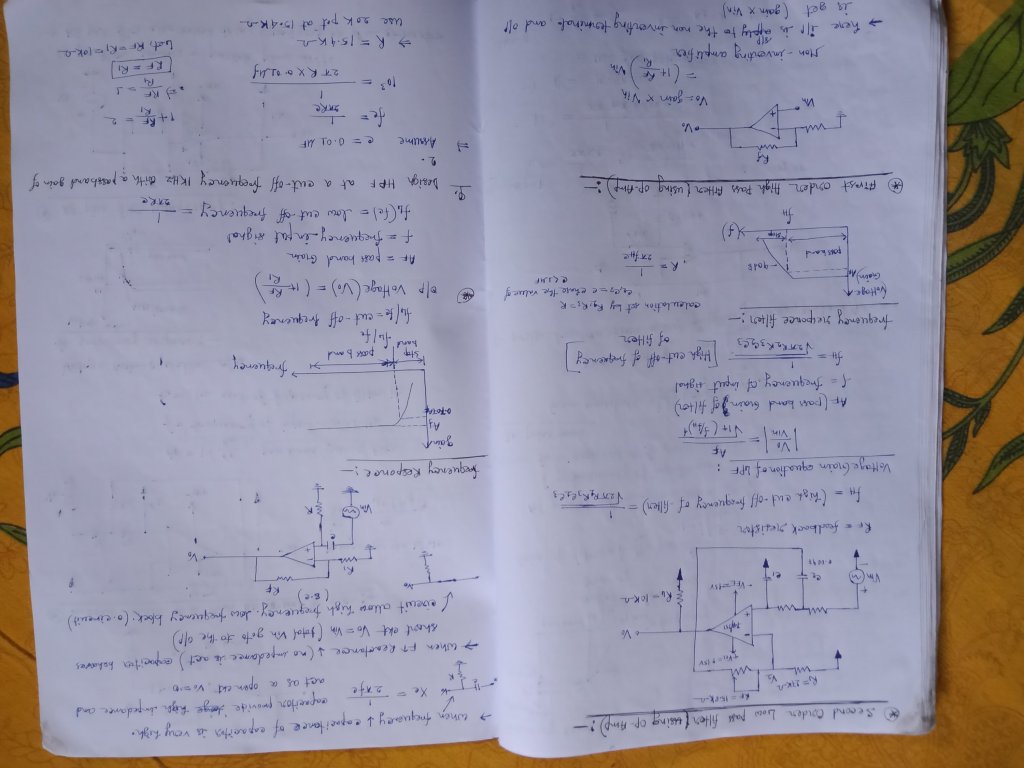 * Second Order Low pass filter (using Op-Amp) :-
R1 = 27KΩ
RF = 15.8KΩ
V2
+VCC = +15V
741
Vo
-VEE = -15V
RL = 10KΩ
Vin
C2
C3
RF = feedback resistor
fH = (high cut-off frequency of filter) = 1/√2πR2R3C2C3
Voltage Gain equation of LPF :
|Vo/Vin| = AF/√1+(f/fH)⁴
AF (pass band Gain of filter)
f = frequency of input signal
fH = 1/√2πR2R3C2C3 [High cut-off of frequency of filter]
frequency response filter :-
Voltage Gain
AF
-40dB
pass band
stop
fH
(f)
calculation set by R2=R3=R
C2=C3=C chose the value of
C≤1μF
R = 1/2πfHC
* First Order High Pass Filter (using Op-Amp) :-
RF
Vin
Vo
Vo = gain × Vin
= (1+RF/R1) Vin
Non-inverting amplifier
→ here i/p is apply to the non inverting terminal and o/p
is get (gain × Vin)
→ When frequency ↓ capacitance of capacitor is very high.
capacitor provide large high impedance and
act as a open ckt Vo=0
Xc = 1/2πfc
→ When f↑ Reactance ↓ (no impedance is act) capacitor behaves
short ckt Vo = Vin (total Vin goto to the o/p)
circuit allow high frequency. low frequency block. (o.circuit)
(s.c)
R1
RF
Vin
C
R
Vo
frequency Response :-
gain
AF
0.707AF
frequency
stop band
pass band
fL/fc
fL/fc = cut-off frequency
* O/P Voltage (Vo) = (1+RF/R1)
AF = pass band Gain
f = frequency in/pt signal
fL(fc) = low cut-off frequency = 1/2πRC
Q. Design HPF at a cut-off frequency 1KHz with a passband gain of
2.
⇒ Assume C = 0.01 μF
fc = 1/2πRC
10³ = 1/2πR×0.01μf
⇒ R = 15.4KΩ
use 20K pot at 15.4KΩ
1+RF/R1 = 2
⇒ RF/R1 = 1
RF = R1
Let, RF = R1 = 10KΩ